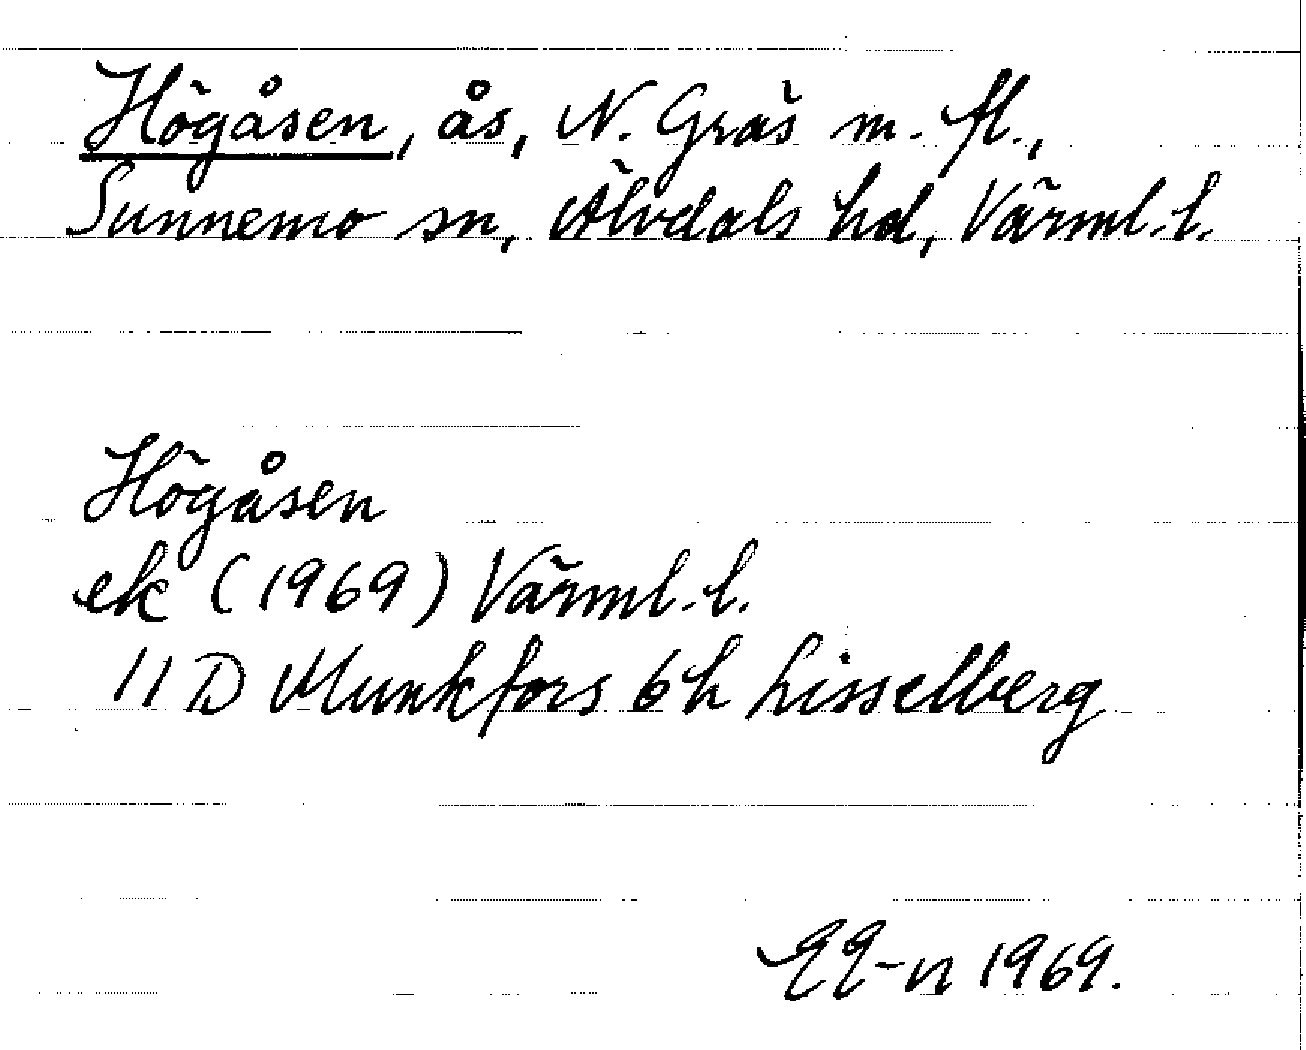 Högåsen, ås, N. Gräs m. fl.,
Sunnemo sn, Älvdals hd, Värml. l.
Högåsen
ek (1969) Värml. l.
11 D Munkfors 6h Lisselberg
1969.